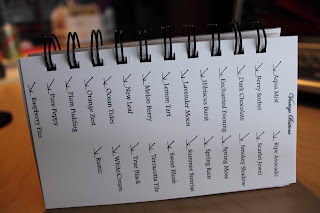 Vintage Streamers
Aqua Mist
Berry Sorbet
Dark Chocolate
Enchanted Evening
Hibiscus Burst
Lavender Moon
Lemon Tart
Melon Berry
New Leaf
Ocean Tides
Orange Zest
Plum Pudding
Pure Poppy
Raspberry Fizz
Ripe Avocado
Scarlet Jewel
Smokey Shadow
Spring Moss
Spring Rain
Summer Sunrise
Sweet Blush
Terracotta Tile
True Black
White/Cream
Rustic